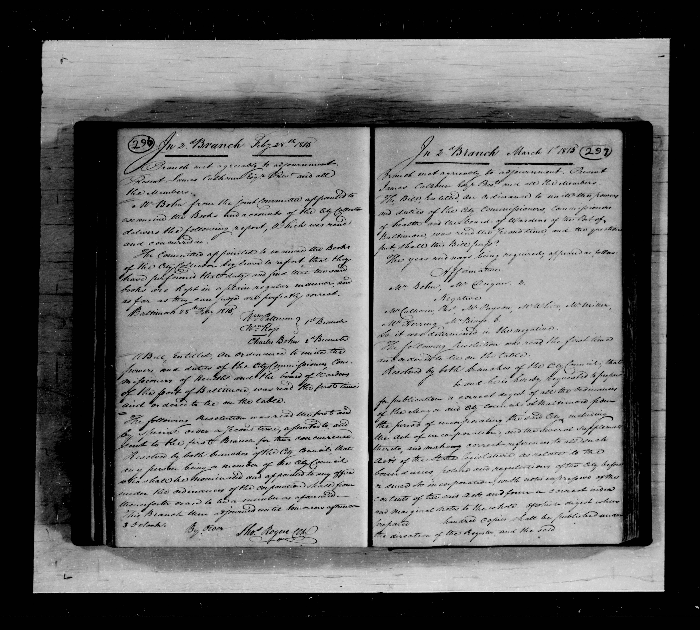 296 In 2d Branch Feby 28th 1815
Branch met agreeably to adjournment.
Present James Calhoun Esqr Presdt and all
the Members.
Mr Bohn from the Joint Committee appointed to
examine the Books and accounts of the City Collector
delivers the following report, Which was read
and concurred in.
The Committee appointed to examine the Books
of the City Collector beg leave to report that they
have performed that duty and find that
books are kept in a plain regular manner, and
as far as they can judge are perfectly correct.
Baltimore 28th Feby 1815,
Wm
Wm
1st Branch
Charles Bohn 2d Branch
A Bill, Entitled, An ordinance to unite the
powers and duties of the City Commissioners, Com-
missioners of Health and the board of Wardens
of the port of Baltimore was read the first time
and ordered to lie on the table.
The following Resolution was read the first and
by special order a second time, assented to and
sent to the first Branch for their concurrence
Resolved by both branches of the City Council, that
no person being a member of the City Council
who shall be nominated and appointed to any office
under the ordinances of the corporation shall from
thenceforth cease to be a member as aforesaid
This Branch then adjourned until tomorrow afternoon
3 o'clock.
By Order
Thos. Rogers Clk
In 2d Branch March 1st 1815 297
Branch met agreeably to adjournment. Present
James Calhoun Esqr Presdt and all the Members.
The Bill Entitled, An ordinance to unite the powers
and duties of the City Commissioners, Commissioners
of Health and the board of Wardens of the Port of
Baltimore, was read the second time, and the question
put shall this Bill pass?
The yeas and nays being required, appeared as follows
Affirmative
Mr Bohn, Mr 2.
Negative
Mr Calhoun Pres. Mr
Mr 6
So it was determined in the negative.
The following Resolution was read the first time
and ordered to lie on the table.
Resolved by both branches of the City Council, that
be and is hereby requested to prepare
for publication a correct copy of all the ordinances
of the Mayor and City Council of Baltimore from
the period of incorporating the said City, including
the act of incorporation, and the several supplements
thereto, and making correct references to all such
Acts of the State legislature as relates to the
rules and regulations of the City before
its incorporation, with notes of the
contents of the said Acts and form a correct index
and marginal notes to the whole
hundred Copies shall be published under
the direction of the Register and the said